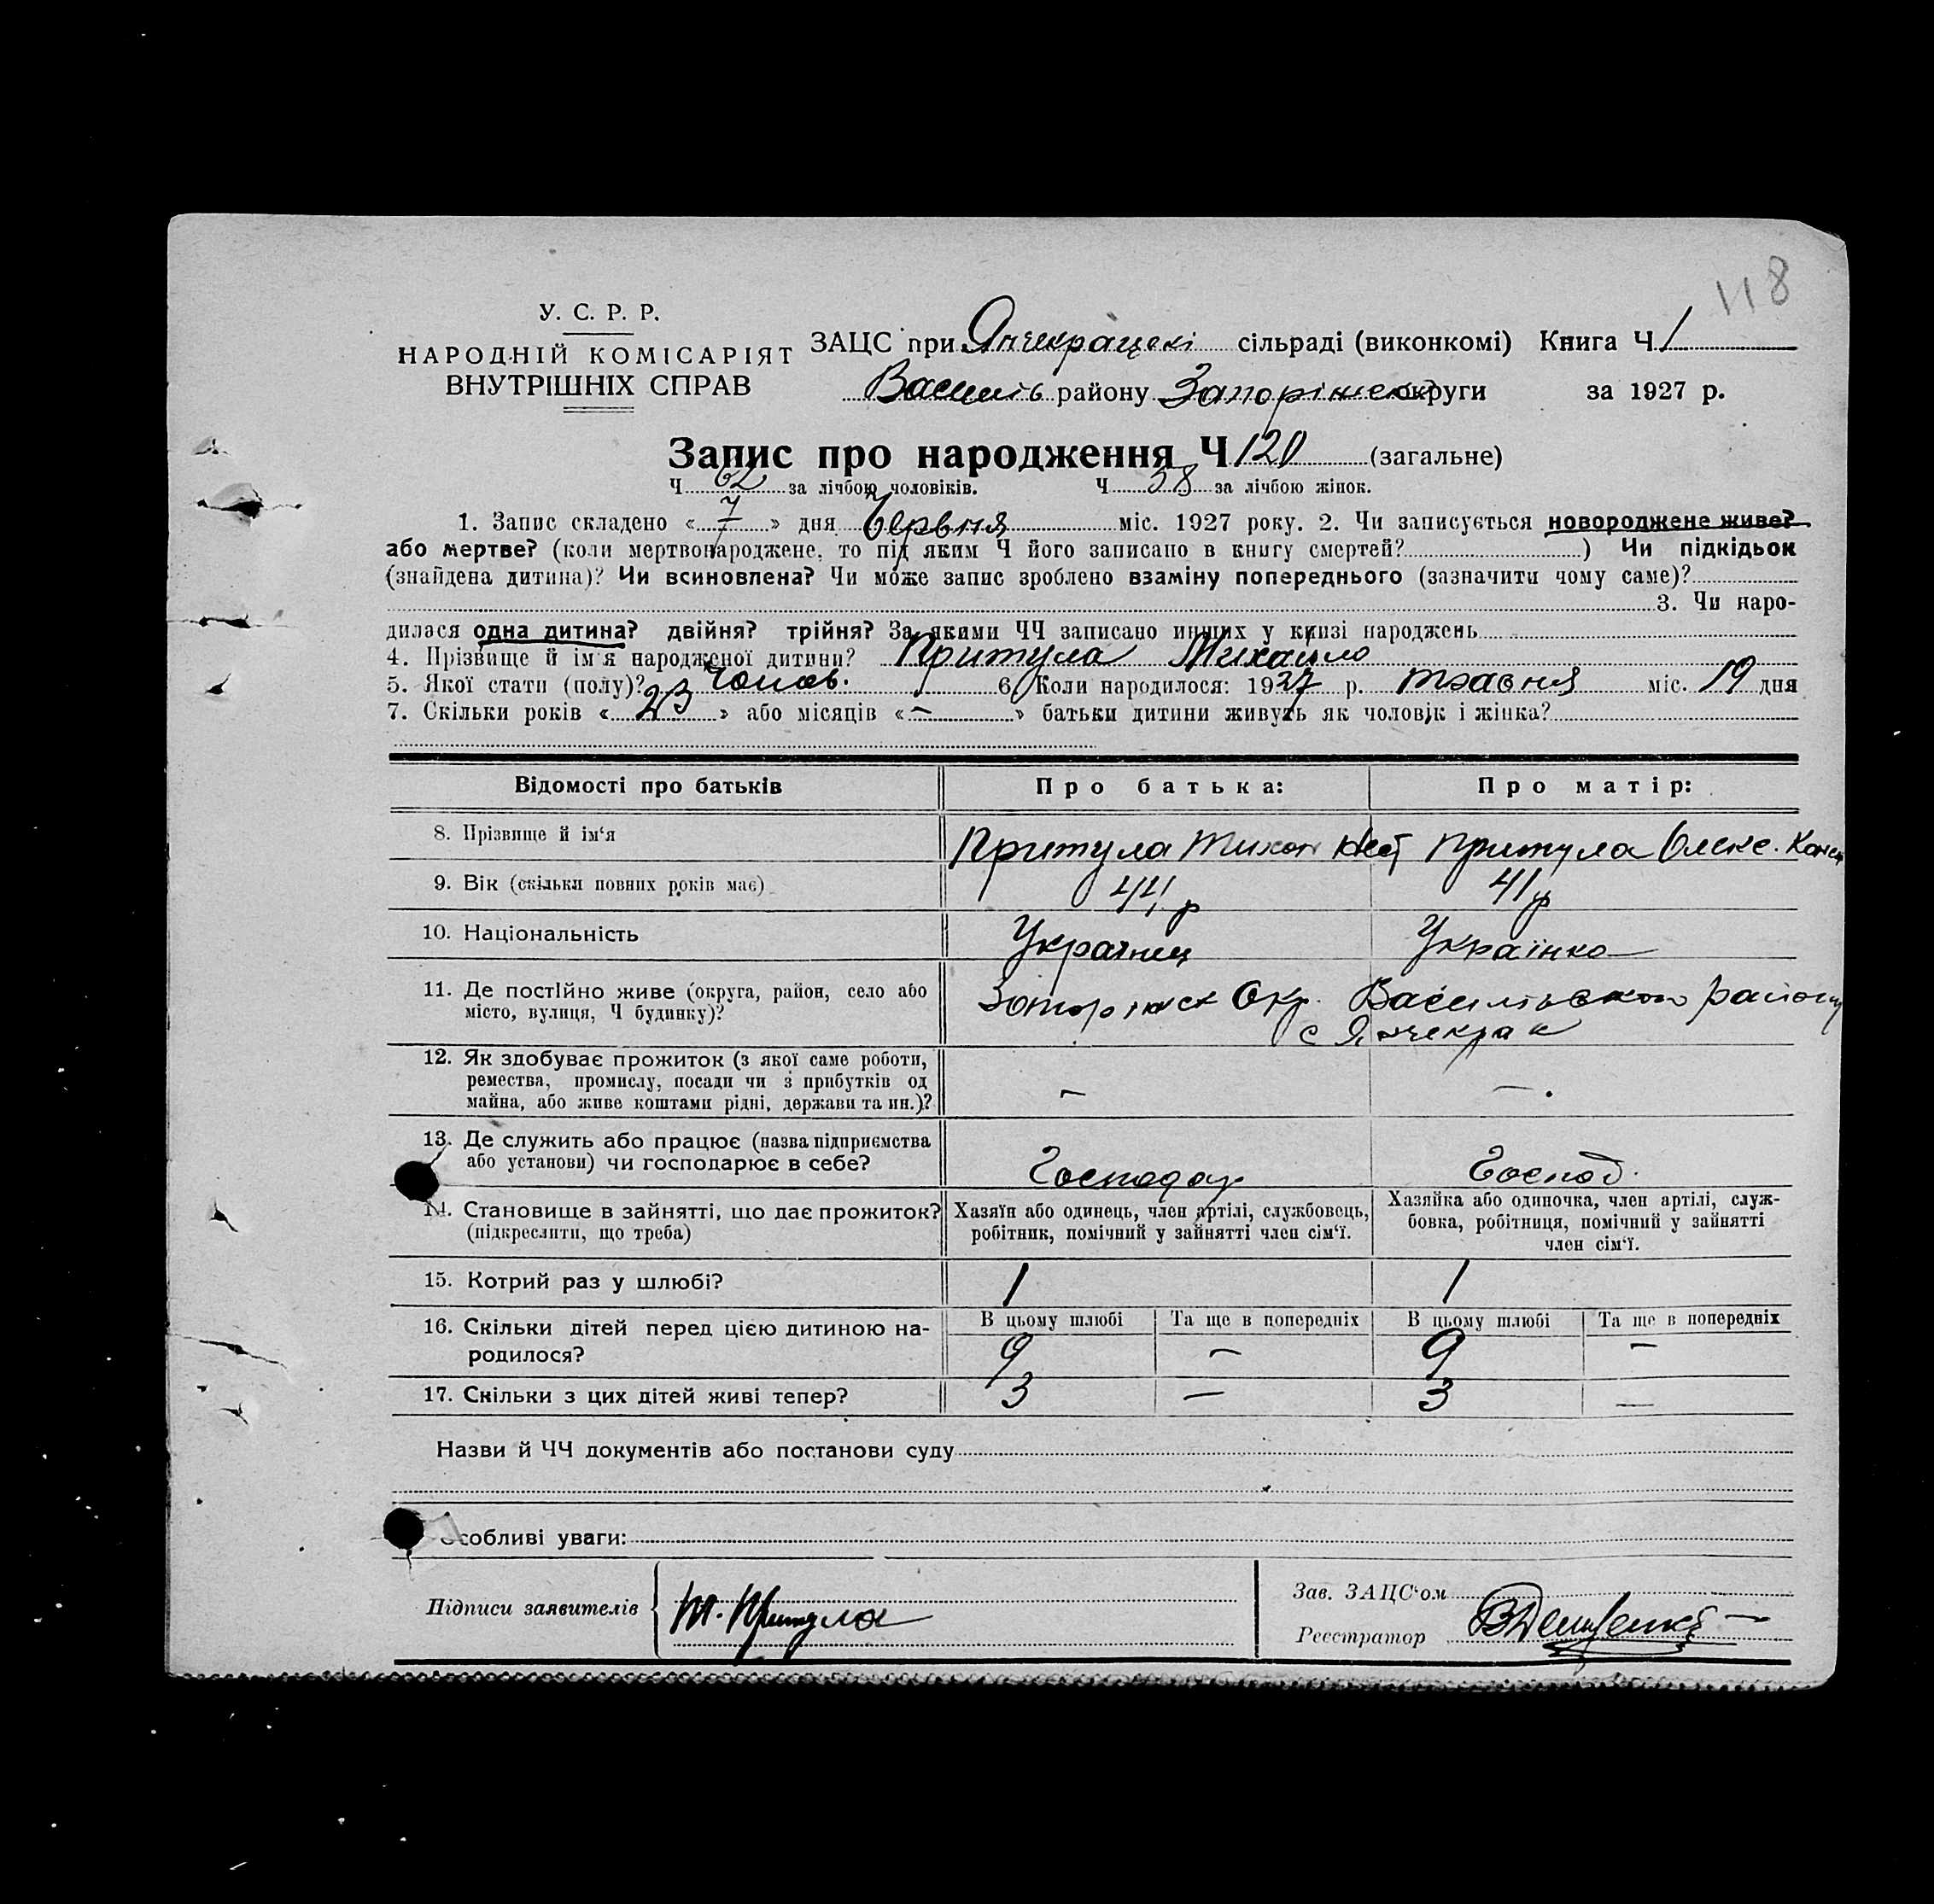 118
У. С. Р. Р.
НАРОДНІЙ КОМІСАРІЯТ
ВНУТРІШНІХ СПРАВ
ЗАЦС при Янчекрацскі сільраді (виконкомі) Книга Ч 1
Василь району Запоріжськ округи за 1927 р.
Запис про народження Ч 120 (загальне)
Ч 62 за лічбою чоловіків. Ч 58 за лічбою жінок.
1. Запис складено « 7 » дня Червня міс. 1927 року. 2. Чи записується новороджене живе?
або мертве? (коли мертвонароджене, то під яким Ч його записано в книгу смертей? ) Чи підкідьок
(знайдена дитина)? Чи всиновлена? Чи може запис зроблено взаміну попереднього (зазначити чому саме)?
3. Чи наро-
дилася одна дитина? двійня? трійня? За якими ЧЧ записано инших у книзі народжень
4. Прізвище й ім'я народженої дитини? Притула Михайло
5. Якої стати (полу)? чолов. 6. Коли народилося: 1927 р. травня міс. 19 дня
7. Скільки років « 23 » або місяців « – » батьки дитини живуть як чоловік і жінка?
Відомості про батьків Про батька: Про матір:
8. Прізвище й ім'я Притула Тихон Притула Олекс.
9. Вік (скільки повних років має) 44 р 41 р
10. Національність Українец Українка
11. Де постійно живе (округа, район, село або
місто, вулиця, Ч будинку)? Окр. Васильвского району
с Янчекрак
12. Як здобуває прожиток (з якої саме роботи,
ремества, промислу, посади чи з прибутків од
майна, або живе коштами рідні, держави та ин.)? – –
13. Де служить або працює (назва підприємства
або установи) чи господарює в себе? Господар Господ.
14. Становище в зайнятті, що дає прожиток? Хазяїн або одинець, член артілі, службовець, Хазяйка або одиночка, член артілі, служ-
(підкреслити, що треба) робітник, помічний у зайнятті член сім'ї. бовка, робітниця, помічний у зайнятті
член сім'ї.
15. Котрий раз у шлюбі? 1 1
16. Скільки дітей перед цією дитиною на- В цьому шлюбі Та ще в попередніх В цьому шлюбі Та ще в попередніх
родилося? 9 – 9 –
17. Скільки з цих дітей живі тепер? 3 – 3 –
Назви й ЧЧ документів або постанови суду
Особливі уваги:
Підписи заявителів Т. Притула
Зав. ЗАЦС'ом
Реєстратор